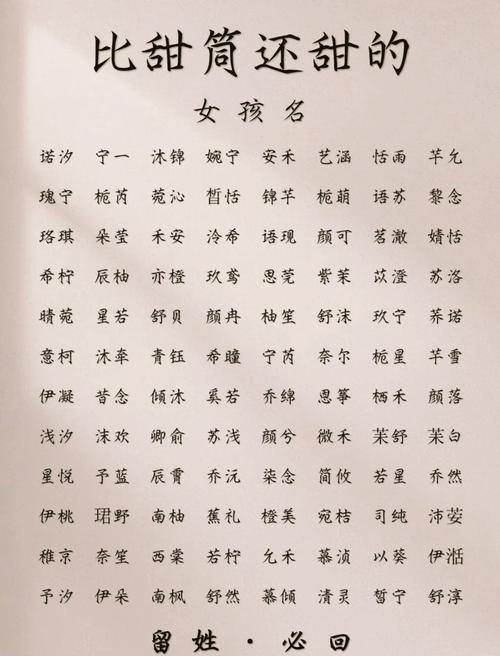 比甜筒还甜的
女孩名
诺汐 宁一 沐锦 婉宁 安禾 艺涵 恬雨 芊允
瑰宁 栀芮 菀沁 皙恬 锦芊 栀萌 语苏 黎念
珞琪 朵莹 禾安 泠希 语现 颜可 茗澈 婧恬
希柠 辰柚 亦橙 玖鸢 思莞 紫茉 苡澄 苏洛
晴菀 星若 舒贝 颜冉 柚笙 舒沫 玖宁 荞诺
意柯 沐牵 青钰 希瞳 宁芮 奈尔 栀星 芊雪
伊凝 昔念 倾沐 奚若 乔绵 思筝 栖禾 颜落
浅汐 沫欢 卿俞 苏浅 颜兮 微禾 茉舒 茉白
星悦 予蓝 辰霄 乔沅 柒念 简攸 若星 乔然
伊桃 珺野 南柚 蕉礼 橙美 宛桔 司纯 沛荌
稚京 奈笙 西棠 若柠 允禾 慕浈 以葵 伊湉
予汐 伊朵 南枫 舒然 慕倾 清灵 皙宁 舒淳
留姓·必回